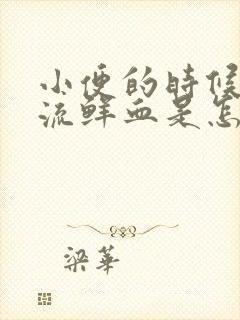 小便的時候
流鮮血是怎
梁華